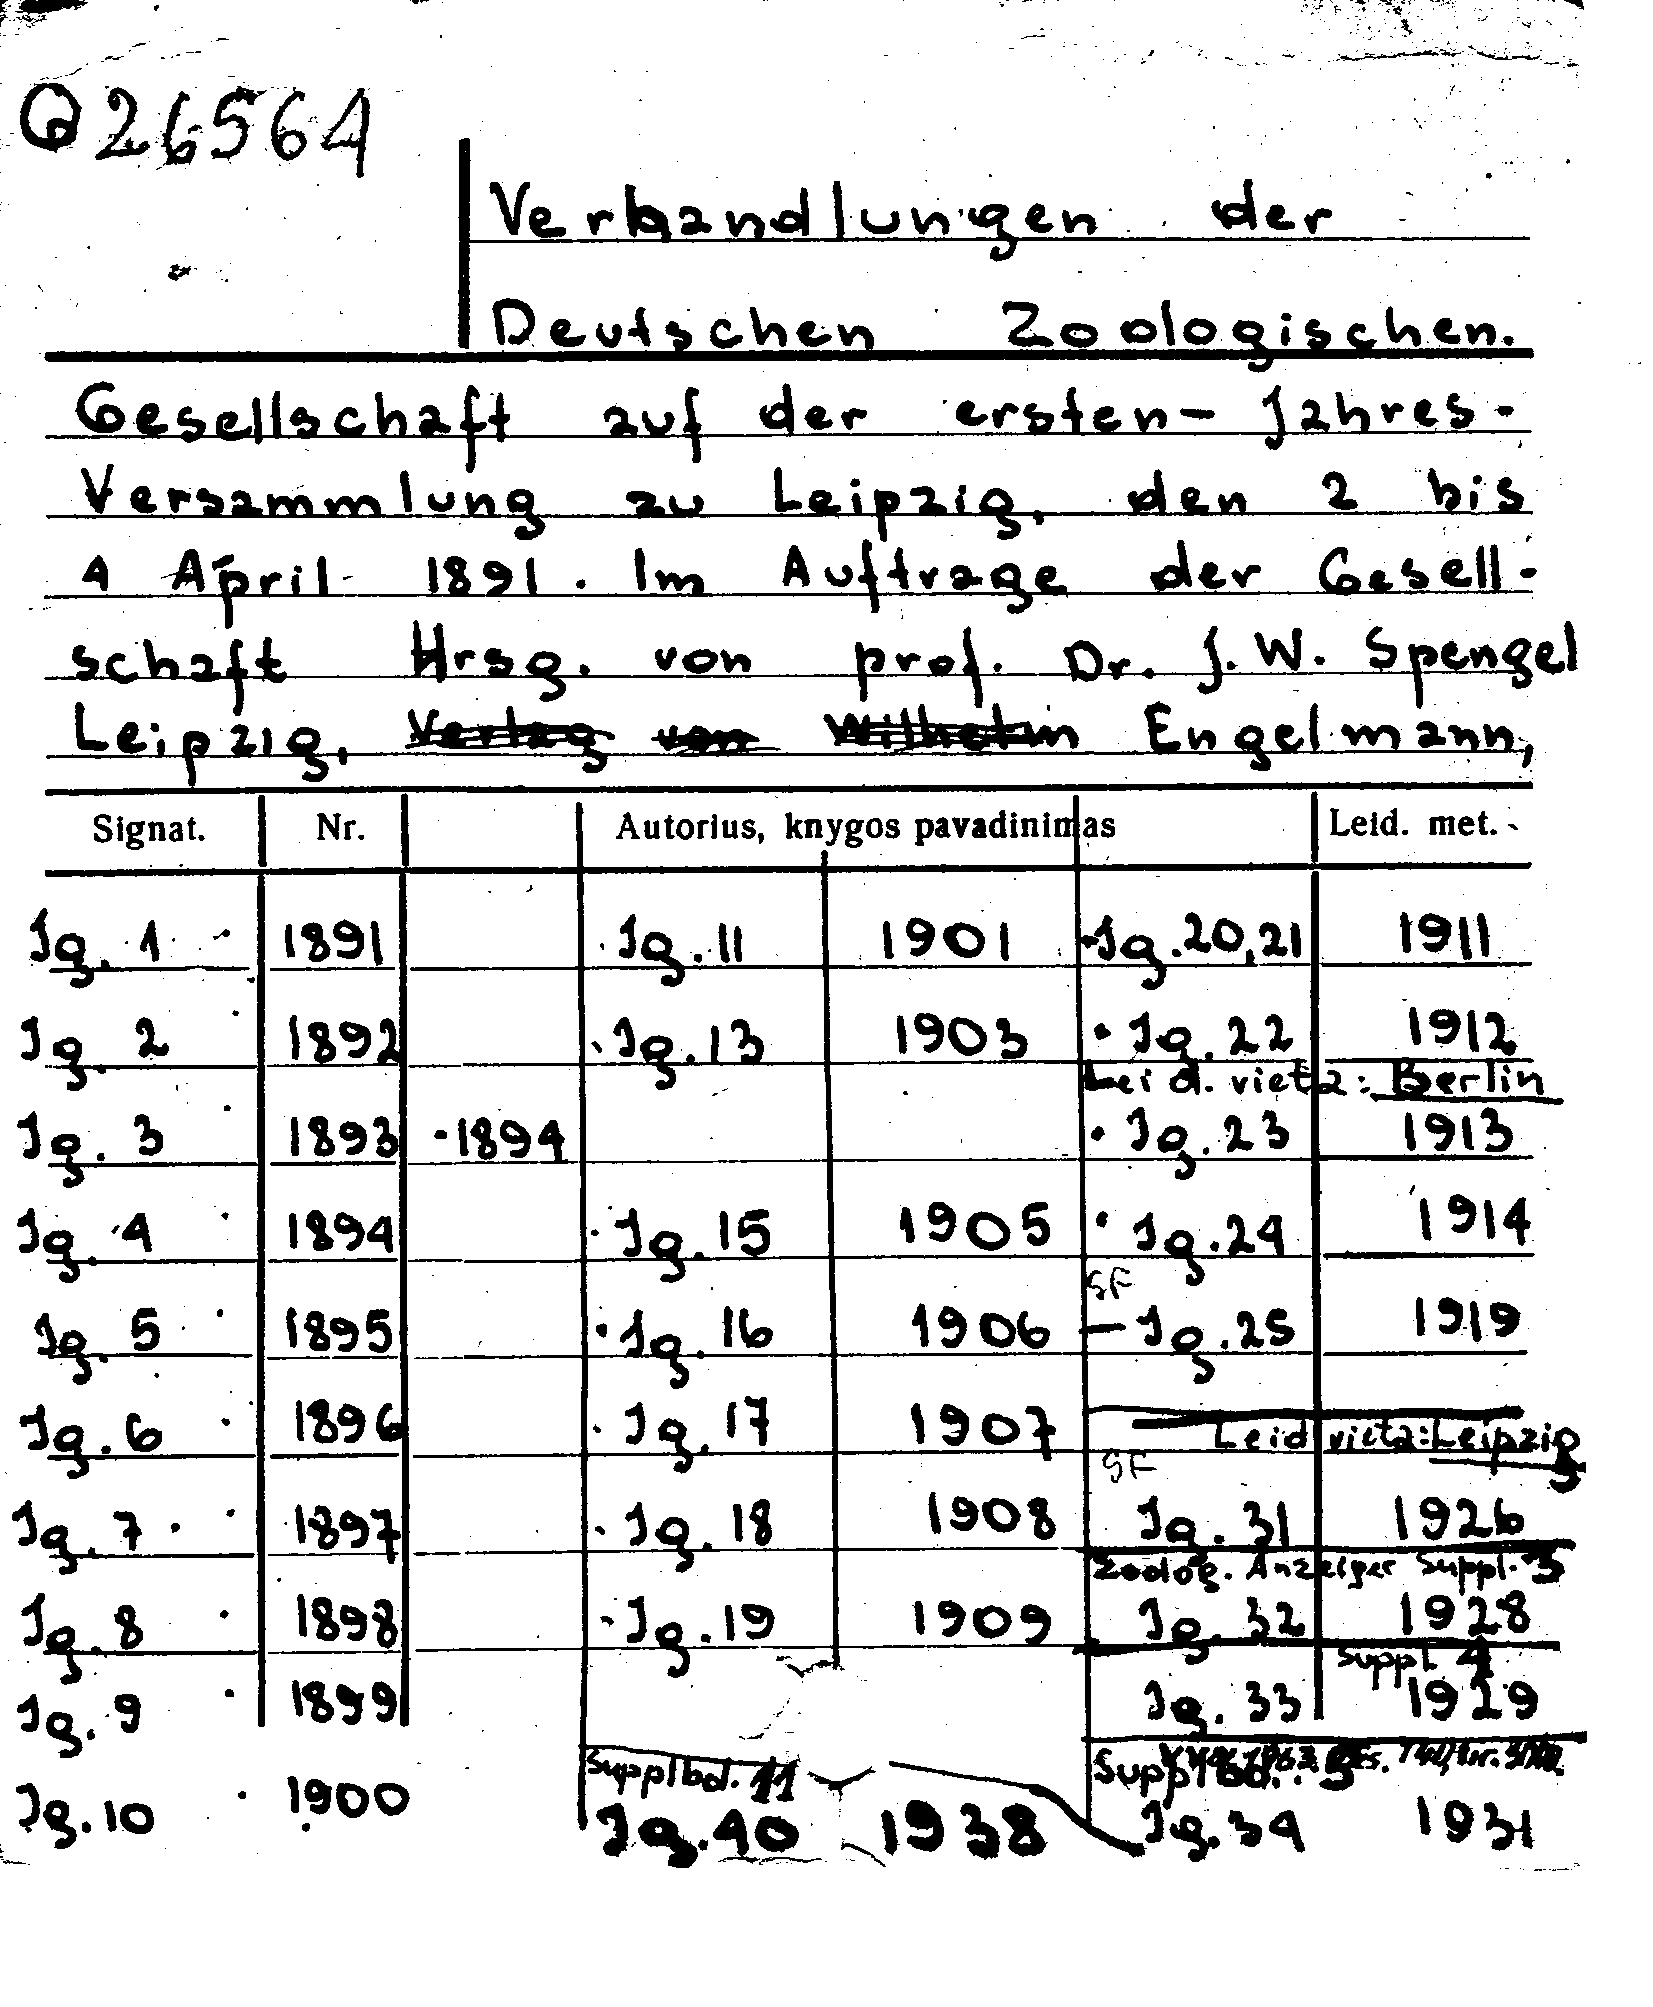 Q 26564
Verhandlungen der
Deutschen Zoologischen.
Gesellschaft auf der ersten- Jahres-
Versammlung zu Leipzig, den 2 bis
4 April 1891. Im Auftrage der Gesell-
schaft Hrsg. von prof. Dr. J. W. Spengel
Leipzig, Verlag von Wilhelm Engelmann,
Signat. Nr. Autorius, knygos pavadinimas Leid. met.
Jg. 1 1891 Jg. 11 1901 Jg. 20,21 1911
Jg. 2 1892 Jg. 13 1903 Jg. 22 1912
Leid. vieta: Berlin
Jg. 3 1893 -1894 Jg. 23 1913
Jg. 4 1894 Jg. 15 1905 Jg. 24 1914
SF
Jg. 5 1895 Jg. 16 1906 Jg. 25 1919
Jg. 6 1896 Jg. 17 1907 Leid vieta: Leipzig
SF
Jg. 7 1897 Jg. 18 1908 Jg. 31 1926
Zoolog. Anzeiger Suppl. 3
Jg. 8 1898 Jg. 19 1909 Jg. 32 1928
Suppl 4
Jg. 9 1899 Jg. 33 1929
Supplbd. 11 Supplbd. 5
Jg. 10 1900 Jg. 40 1938 Jg. 34 1931